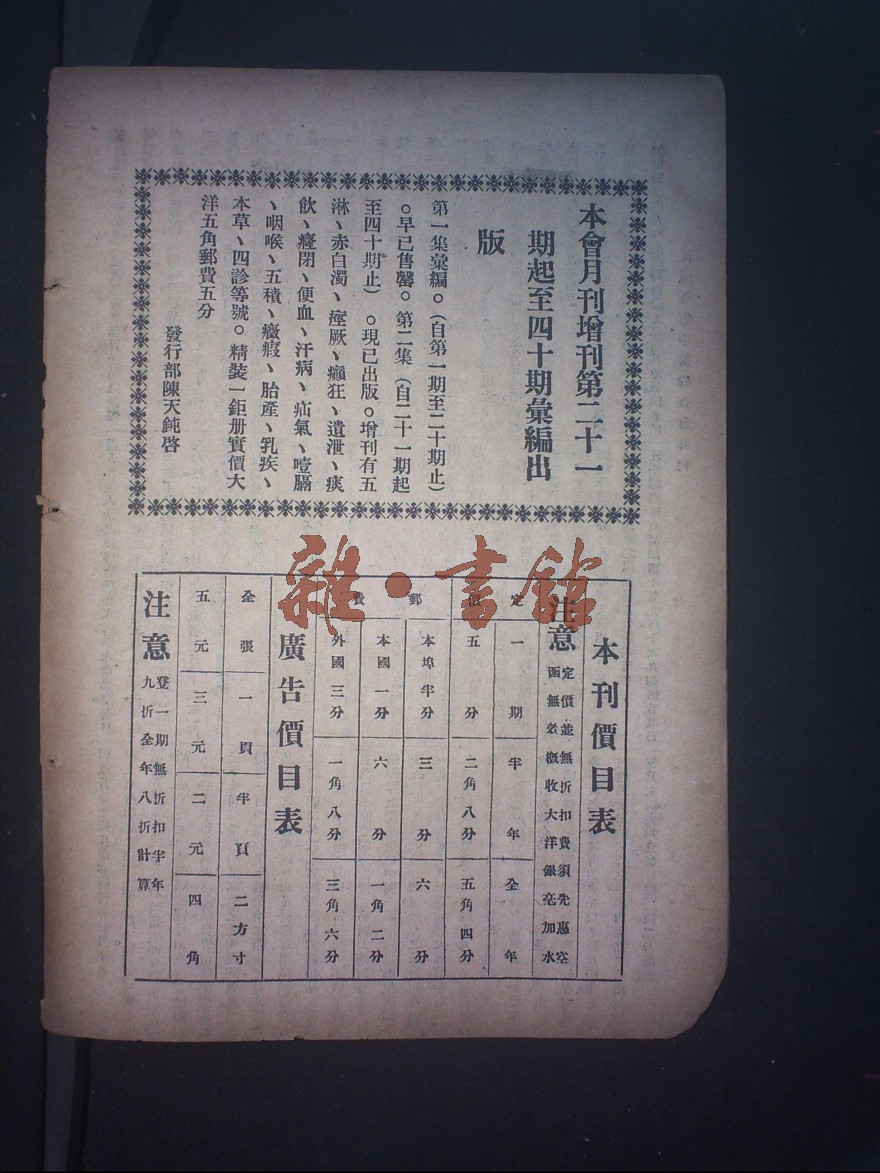 本會月刊增刊第二十一
期起至四十期彙編出
版
第一集彙編。(自第一期至二十期止)
。早已售罄。第二集(自二十一期起
至四十期止)。現已出版。增刊有五
淋、赤白濁、痙厥、癲狂、遺泄、痰
飲、癃閉、便血、汗病、疝氣、噎膈
、咽喉、五積、癥瘕、胎產、乳疾、
本草、四診等號。精裝一鉅册實價大
洋五角郵費五分
發行部陳天鈍啓
本刊價目表
注意
定價並無折扣費須先惠空
函無效概收大洋銀毫加水
定價 郵費
一期 半年 全年
五分 二角八分 五角四分
本埠半分 三分 六分
本國一分 六分 一角二分
外國三分 一角八分 三角六分
廣告價目表
全張 一頁 半頁 二方寸
五元 三元 二元 四角
注意
登一期無折扣半年
九折全年八折計算
雜·書館